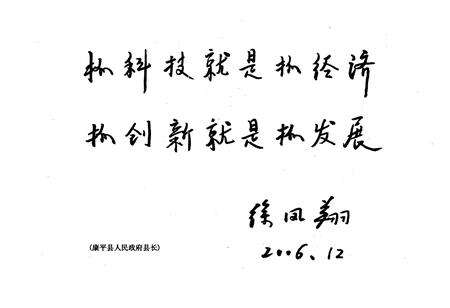 抓科技就是抓经济
抓创新就是抓发展
徐凤翔
(康平县人民政府县长)
2006.12